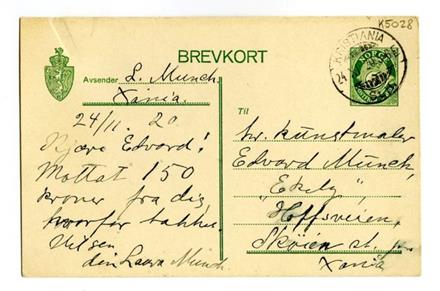 K5028
BREVKORT
KRISTIANIA
24
NORGE
Avsender L. Munch
Xania.
24/11. 20
Kjære Edvard!
Mottat 150
kroner fra dig,
hvorfor takker.
Hilsen
din Laura Munch
Til
hr. kunstmaler
Edvard Munch,
"Ekely",
Hoffsveien,
Skøien st.
Xania